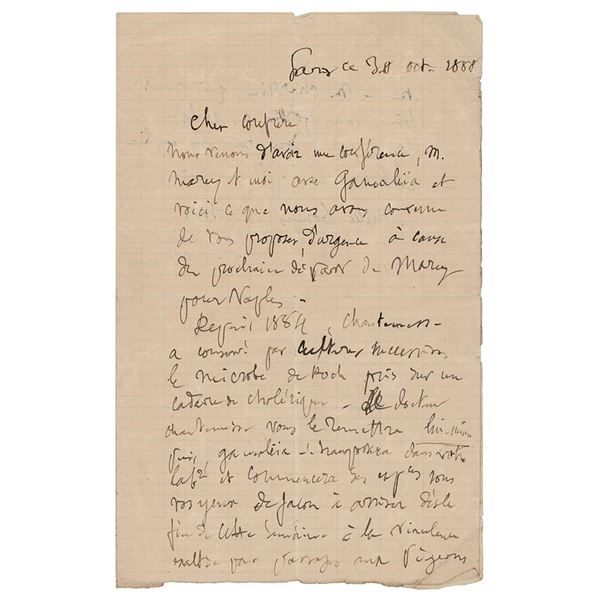 Paris ce 30 oct. 1888
Cher confrère
Nous venons d'avoir une conférence, M.
Marey et moi avec Gamaléïa et
voici ce que nous avons convenu
de vous proposer d'urgence à cause
du prochain départ de Marey
pour Naples -
Depuis 1884, Chantemesse
a conservé par cultures successives
le microbe de Koch pris sur un
cadavre de cholérique - Le docteur
Chantemesse vous le remettra lui-même
puis, Gamaléïa dans votre
lab^re et commencera ses exp^ces sous
vos yeux de façon à arriver dès la
fin de cette semaine à la virulence
exaltée par passages aux Pigeons